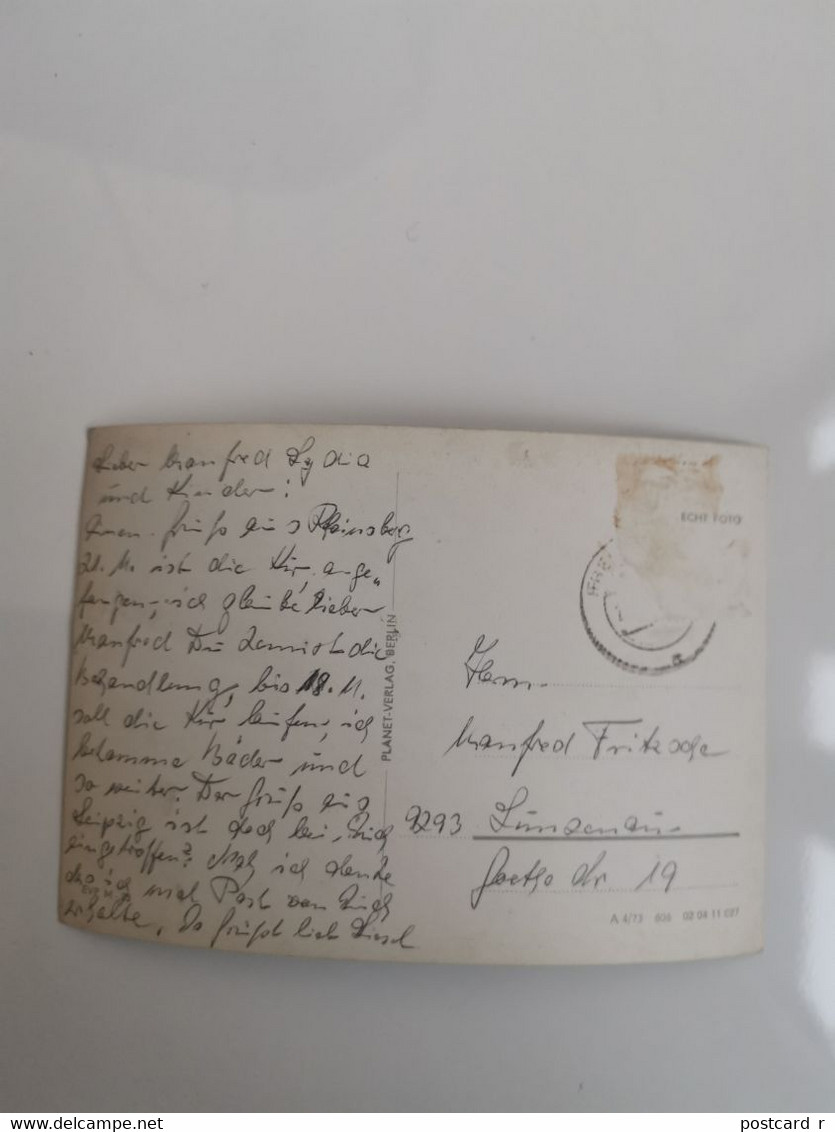 Lieber Manfred Lydia
und Kinder!
Gruß aus Rheinsberg
21. 11. ist die Kur ange„
fangen, ich glaube lieber
Manfred Du kennst die
Behandlung, bis 18. 11.
soll die Kur laufen, ich
bekomme Bäder und
so weiter. Der Gruß aus
Leipzig ist doch bei Euch
eingetroffen? ich denke
das ich mal Post von Euch
erhalte. Es grüßt lieb Liesel
PLANET-VERLAG, BERLIN
ECHT FOTO
Herrn
Manfred Fritzsche
9293 Lunzenau
Goethe Str 19
A 4/73 808 02 04 11 027
www.delcampe.net
postcard_r